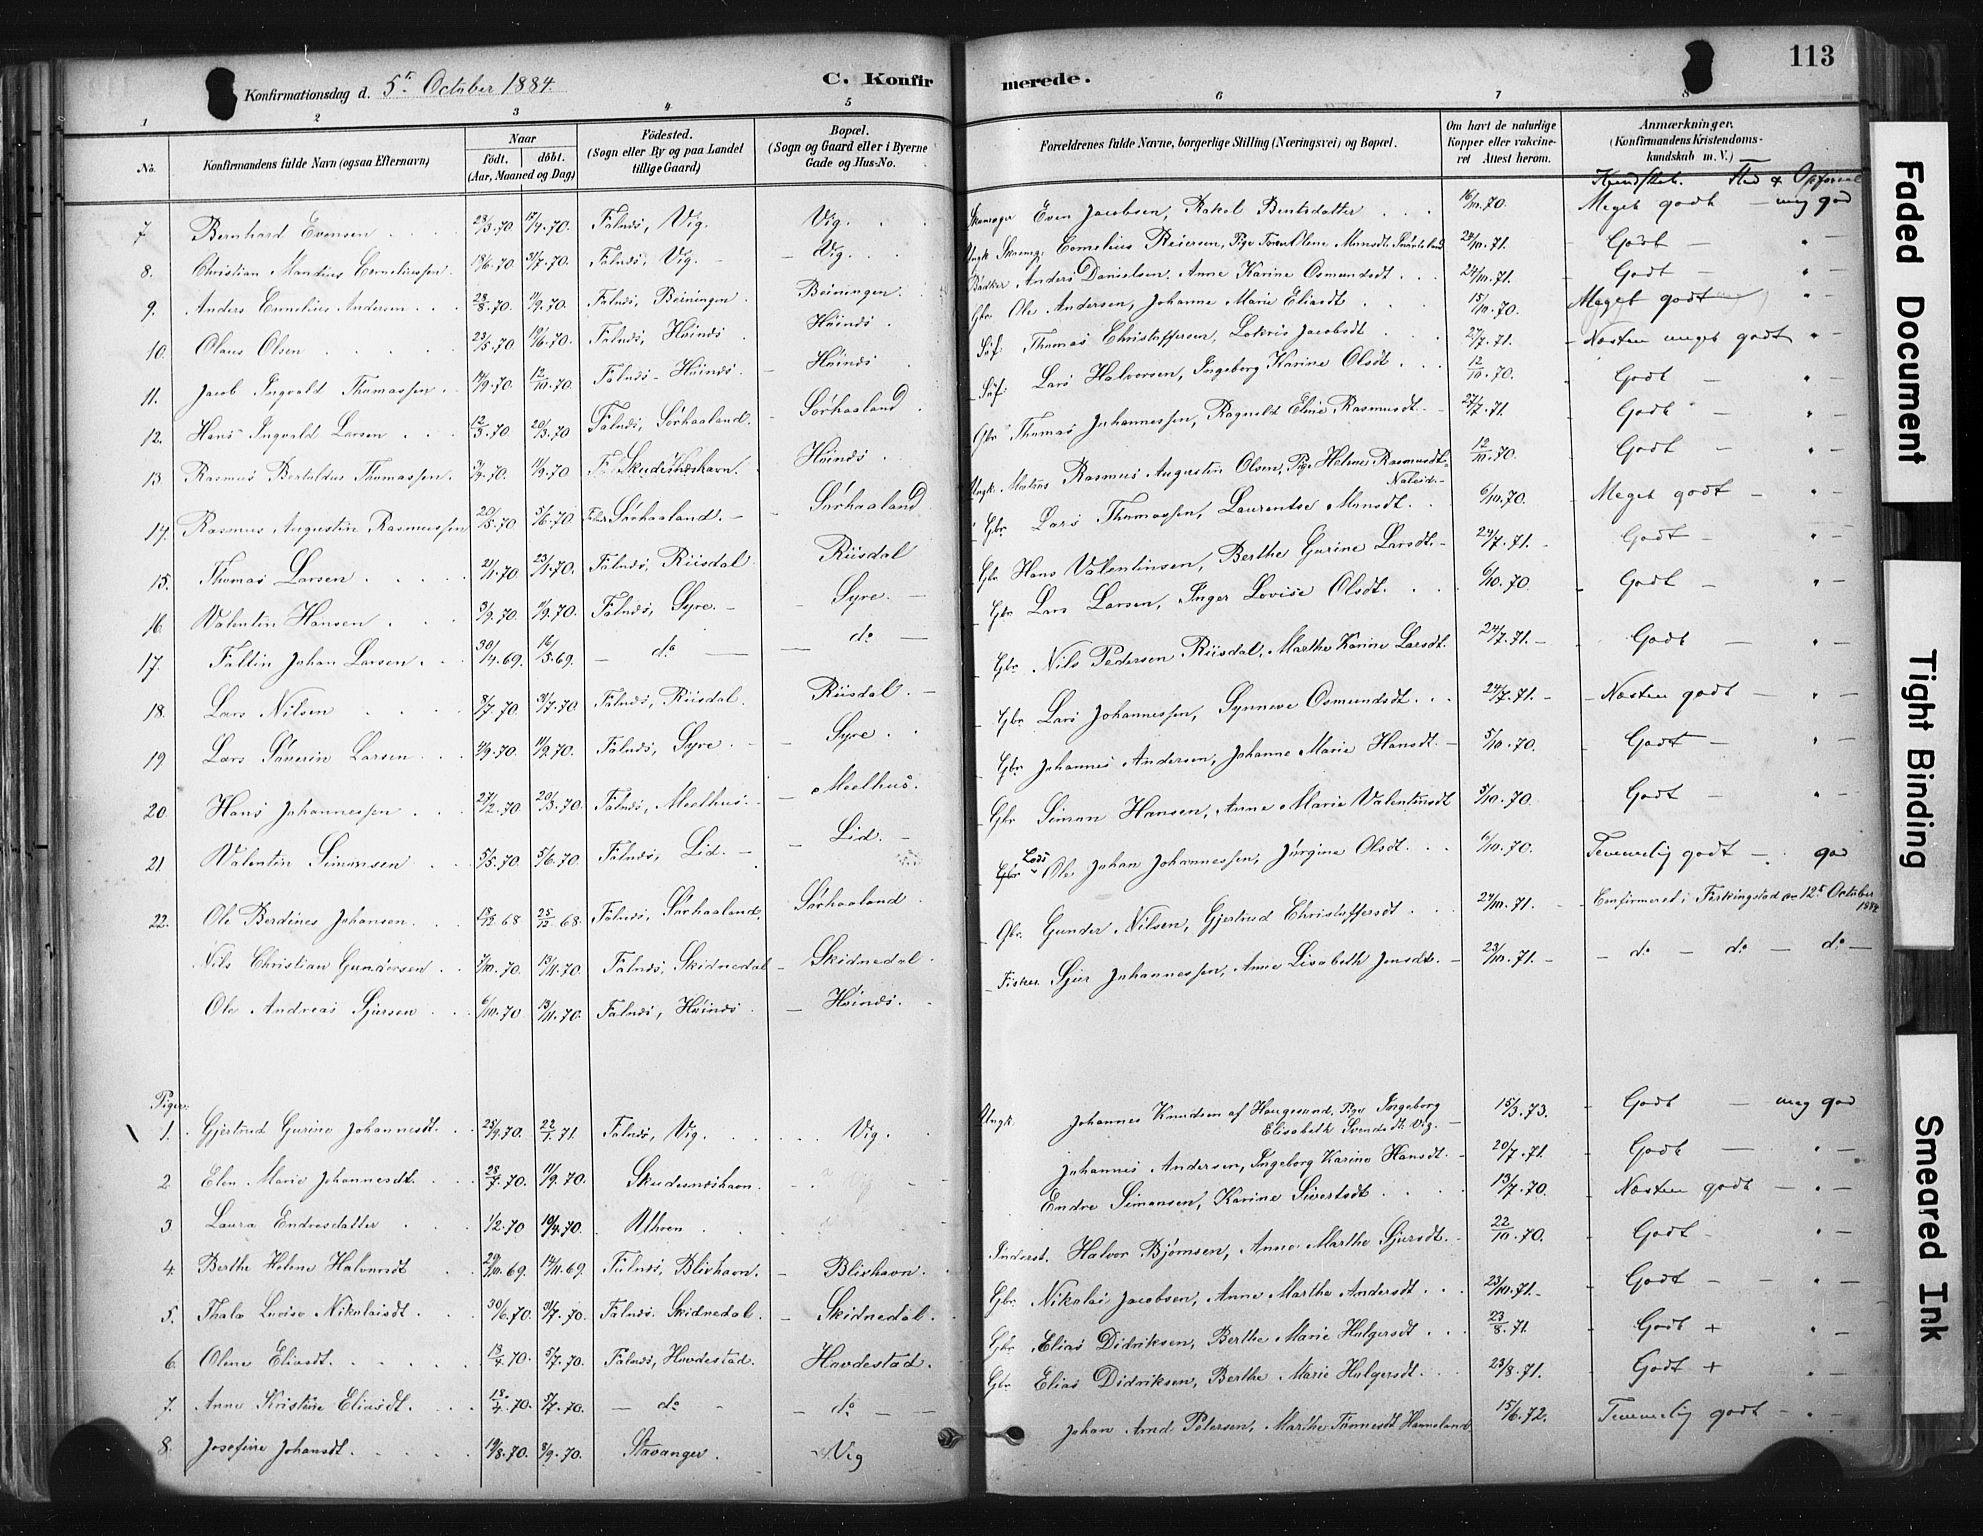 113
Konfirmationsdag d. 5t October 1884.
C. Konfirmerede.
1 2 3 4 5 6 7 8
No.
Konfirmandens fulde Navn (ogsaa Efternavn)
Naar
født. døbt.
(Aar, Maaned og Dag)
Fødested.
(Sogn eller By og paa Landet
tillige Gaard)
Bopæl.
(Sogn og Gaard eller i Byerne
Gade og Hus-No.
Forældrenes fulde Navne, borgerlige Stilling (Næringsvei) og Bopæl.
Om havt de naturlige
Kopper eller vakcine-
ret Attest herom.
Anmærkninger.
(Konfirmandens Kristendoms-
kundskab m. V.)
Kundskab. Flid & Opførsel
7 Bernhard Evensen 28/3.70 17/4.70. Falnæs, Vig. Vig. Even Jacobsen, Rakel Bentsdatter 70. Meget godt — meg god
8. Christian Mandius Corneliussen. 18/6.70 31/7.70. Falnæs, Vig. — Vig. Ungk. Cornelius Reiersen, Pige 71. Godt — " —
9. Anders Cornelius Andersen 28/8.70 11/9.70. Falnæs, Beiningen. Beiningen. Bødker Anders Danielsen, Anne Karine Osmundsdt 24/10.71. Godt — " —
10. Olaus Olsen 23/5.70 19/6.70. Falnæs, Høinæs Høinæs. Gbr. Ole Andersen, Johanne Marie Eliasdt 15/10.70. Meget godt — " —
11. Jacob Ingvald Thomassen. 70 12/10.70. Falnæs — Høinæs. Høinæs Søf. Thomas Christoffersen, Jacobsdt 27/7.71. Næsten meget godt " —
12. Hans Ingvald Larsen 12/3.70 20/3.70 Falnæs, Sørhaaland. — Sørhaaland. Søf. Lars Halvorsen, Ingeborg Karine Olsdt 12/10.70. Godt — " —
13. Rasmus Bertaldus Thomassen. 70. 11/9.70 F Skudesnæshavn. Høinæs. Gbr Thomas Johannessen, Ragnild Eline Rasmusdt. 27/7.71. Godt — " —
14. Rasmus Augustin Rasmussen 20/5.70 5/6.70. Falnæs Sørhaaland. — Sørhaaland Ungk. Rasmus Augustin Olsen, Pige Helene Rasmusdt. 12/10.70. Godt — " —
15. Thomas Larsen 21/1.70. 23/1.70. Falnæs, Riisdal. Riisdal Gbr. Lars Thomassen, Laurentse Monsdt. 6/10.70. Meget godt — " —
16. Valentin Hansen 3/9.70. 11/9.70. Falnæs, Syre. — Syre. — Gbr Hans Valentinsen, Berthe Gurine Larsdt. 24/7.71. Godt — " —
17. Faltin Johan Larsen. 30/4.69. 16/5.69. — do — do — Gbr Lars Larsen, Inger Lovise Olsdt. 6/10.70. Godt — " —
18. Lars Nilsen 8/7.70. 31/7.70 Falnæs, Riisdal. Riisdal. — Gbr Nils Pedersen Riisdal, Marthe Karine Larsdt. 24/7.71. — Godt — " —
19 Lars Søverin Larsen 4/9.70. 11/9.70. Falnæs, Syre. — Syre. Gbr Lars Johannessen, Synneve Osmundsdt. 24/7.71. — Næsten godt — " —
20. Hans Johannessen 27/2.70 20/3.70. Falnæs, Meelhus. — Meelhus. Gbr Johannes Andersen, Johanne Marie Hansdt. — 5/10.70. Godt — " —
21 Valentin Simonsen 5/5.70 5/6.70. Falnæs, Lid. — Lid. — Gbr Simon Hansen, Anne Marie Valentinsdt 5/10.70. Godt — " —
22. Ole Berdines Johansen. 68 25/12.68. Falnæs, Sørhaaland. Sørhaaland Lods Ole Johan Johannessen, Jørgine Olsdt. 6/10.70. Temmelig godt — god
Nils Christian Gundersen 2/10.70. 13/11.70 Falnæs, Skidnedal — Skidnedal. Gbr. Gunder Nilsen, Gjertrud Christoffersdt. 24/10.71. — Confirmeret i Ferkingstad 12t October 1884
Ole Andreas Sjursen 6/10.70 13/11.70. Falnæs, Høinæs — Høinæs. Fisker Sjur Johannessen, Anne Lisabeth Jensdt. — 23/10.71. — do — do — do —
Piger.
1. Gjertrud Gurine Johannesdt. 25/9.70. 22/1.71. Falnæs, Vig. Vig. Ungk. Johannes Knudsen af Haugesund, Pige Ingeborg
Elisabeth Svendsdt. Vig. — 15/3.73. Godt — meg god
2. Elen Marie Johannesdt. 28/7.70. 11/9.70. Skudesnæshavn. Johannes Andersen, Ingeborg Karine Hansdt. 20/7.71. Godt — " —
3 Laura Endresdatter 1/2.70 70. Uthven. Endre Simonsen, Karine Sivertsdt 13/7.70. Næsten godt — " —
4. Berthe Helene Halvorsdt 29/10.69. 14/11.69 Falnæs, Blixhavn. — Blixhavn. Inderst. Halvor Bjørnsen, Anne Marthe Sjursdt. 22/10.70. Godt — " —
5. Thala Lovise Nikolaisdt. 30/6.70 31/7.70. Falnæs. Skidnedal. — Skidnedal. Gbr. Nikolai Jacobsen, Anne Marthe Andersdt. 23/10.71. — Godt — — " —
6. Olene Eliasdt. 18/4.70. 5/7.70. Falnæs, Hovdestad. Hovdestad. Gbr. Elias Didriksen, Berthe Marie Holgersdt 23/8.71. Godt + " —
7. Anne Kristine Eliasdt. 18/4.70. 5/7.70. — do — — do — — Gbr Elias Didriksen, Berthe Marie Holgersdt. 23/8.71. Godt + " —
8. Josefine Johansdt. 19/8.70. 8/9.70. Stavanger. Vig Johan Arnd Petersen, Marthe 15/6.72. Temmelig godt — "
Faded Document
Tight Binding
Smeared Ink